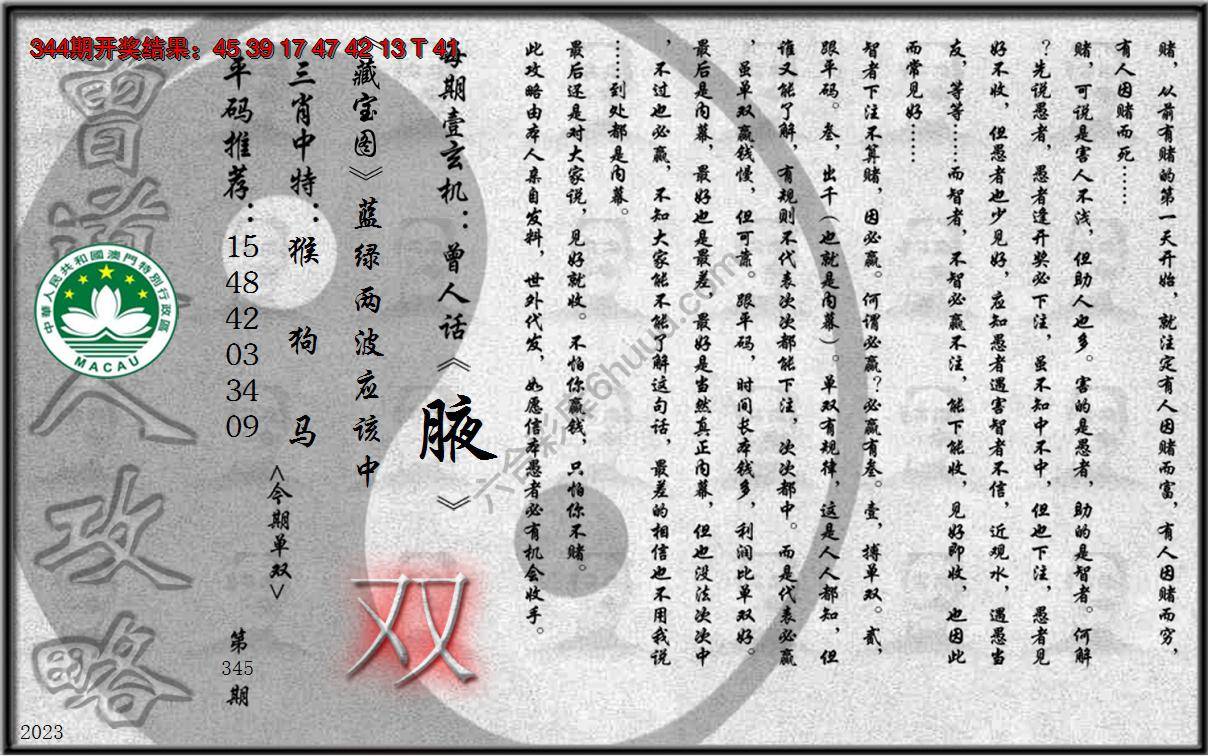 344期开奖结果：45 39 17 47 42 13 T 41
赌，从前有赌的第一天开始，就注定有人因赌而富，有人因赌而穷，
有人因赌而死……
赌，可说是害人不浅，但助人也多。害的是愚者，助的是智者。何解
？先说愚者，愚者逢开奖必下注，虽不知中不中，但也下注，愚者见
好不收，但愚者也少见好，应知愚者遇害智者不信，近观水，遇愚当
友，等等……而智者，不智必赢不注，能下能收，见好即收，也因此
而常见好……
智者下注不算赌，因必赢。何谓必赢？必赢有叁。壹，搏单双。贰，
跟平码。叁，出千（也就是内幕）。单双有规律，这是人人都知，但
谁又能了解，有规则不代表次次都能下注，次次都中。而是代表必赢
，虽单双赢钱慢，但可靠。跟平码，时间长本钱多，利润比单双好。
最后是内幕，最好也是最差，最好是当然真正内幕，但也没法次次中
，不过也必赢，不知大家能不能了解这句话，最差的相信也不用我说
……到处都是内幕。
最后还是对大家说，见好就收。不怕你赢钱，只怕你不赌。
此攻略由本人亲自发料，世外代发，如愿信本愚者必有机会收手。
每期壹玄机：曾人话《腋》
《藏宝图》蓝绿两波应该中
双
三肖中特：猴 狗 马
<今期单双>
平码推荐：
15
48
42
03
34
09
第
345
期
曾道人攻略
中華人民共和國澳門特別行政區
MACAU
六合彩库6huuu.com
2023